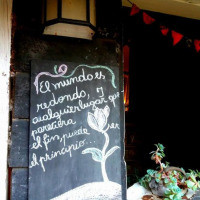 El mundo es
redondo, y
cualquier lugar que
pareciera ser
el fin, puede
el principio...